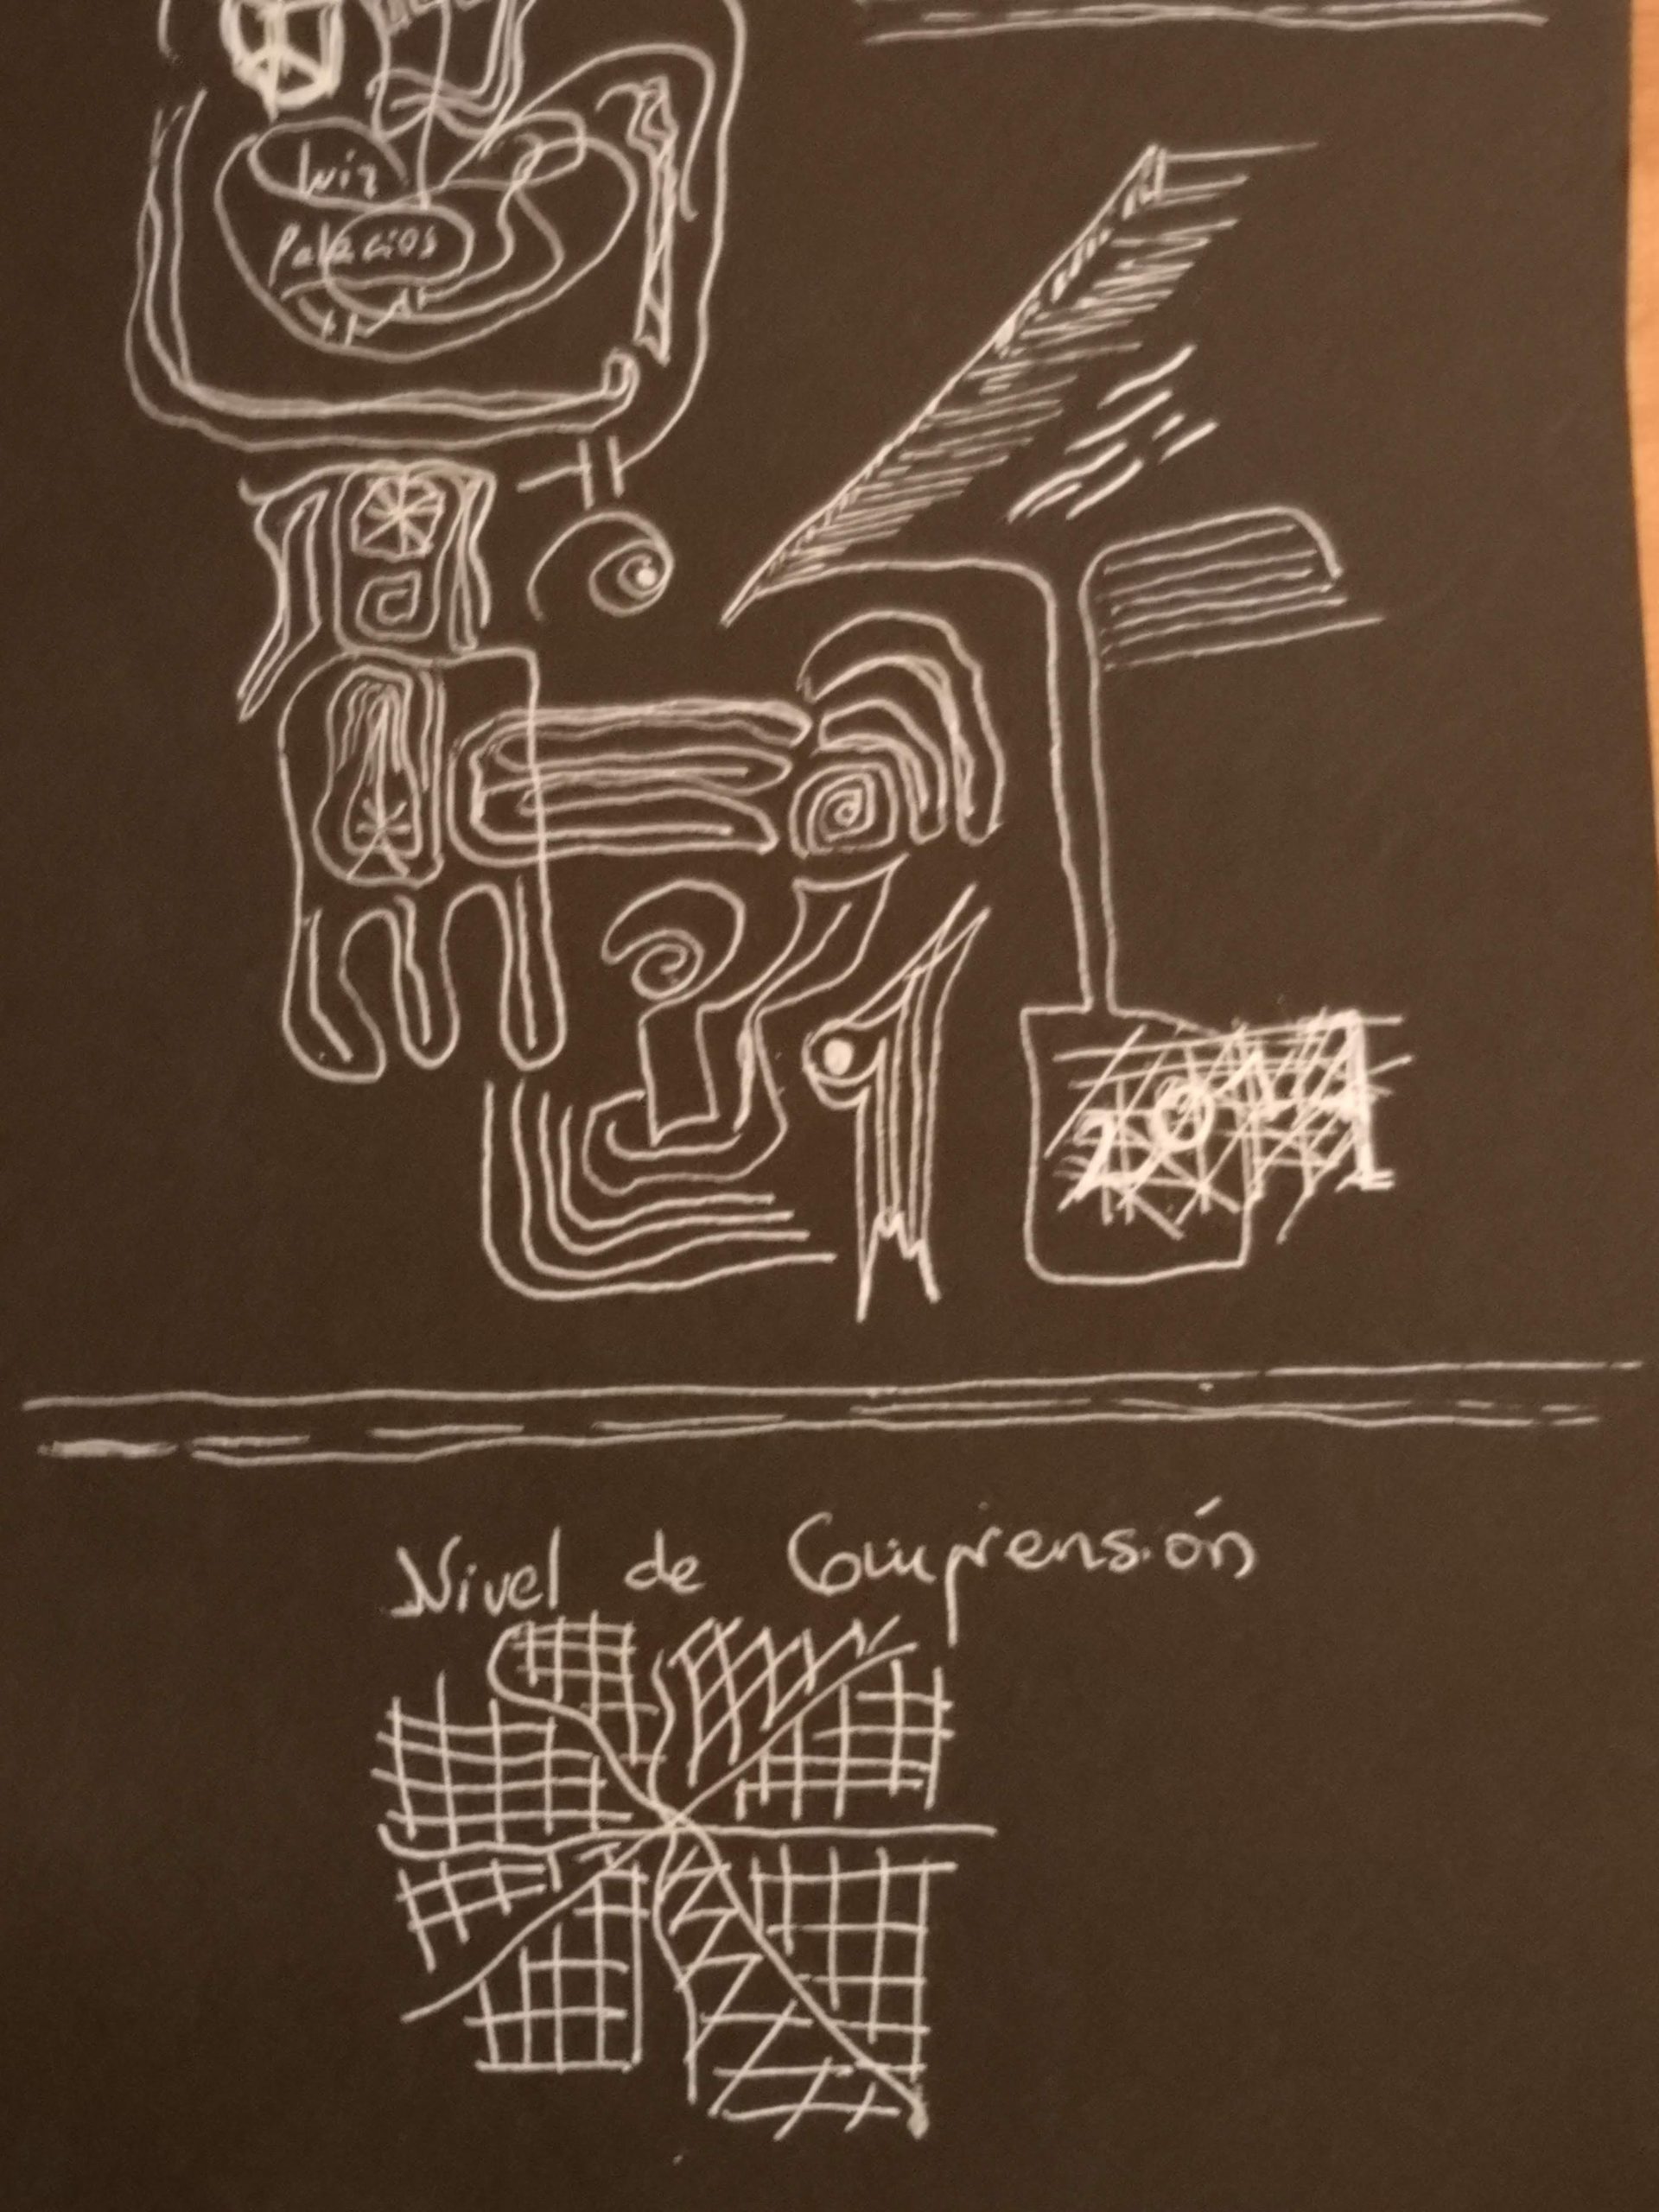 Luis
Palacios
2014
Nivel de Comprensión